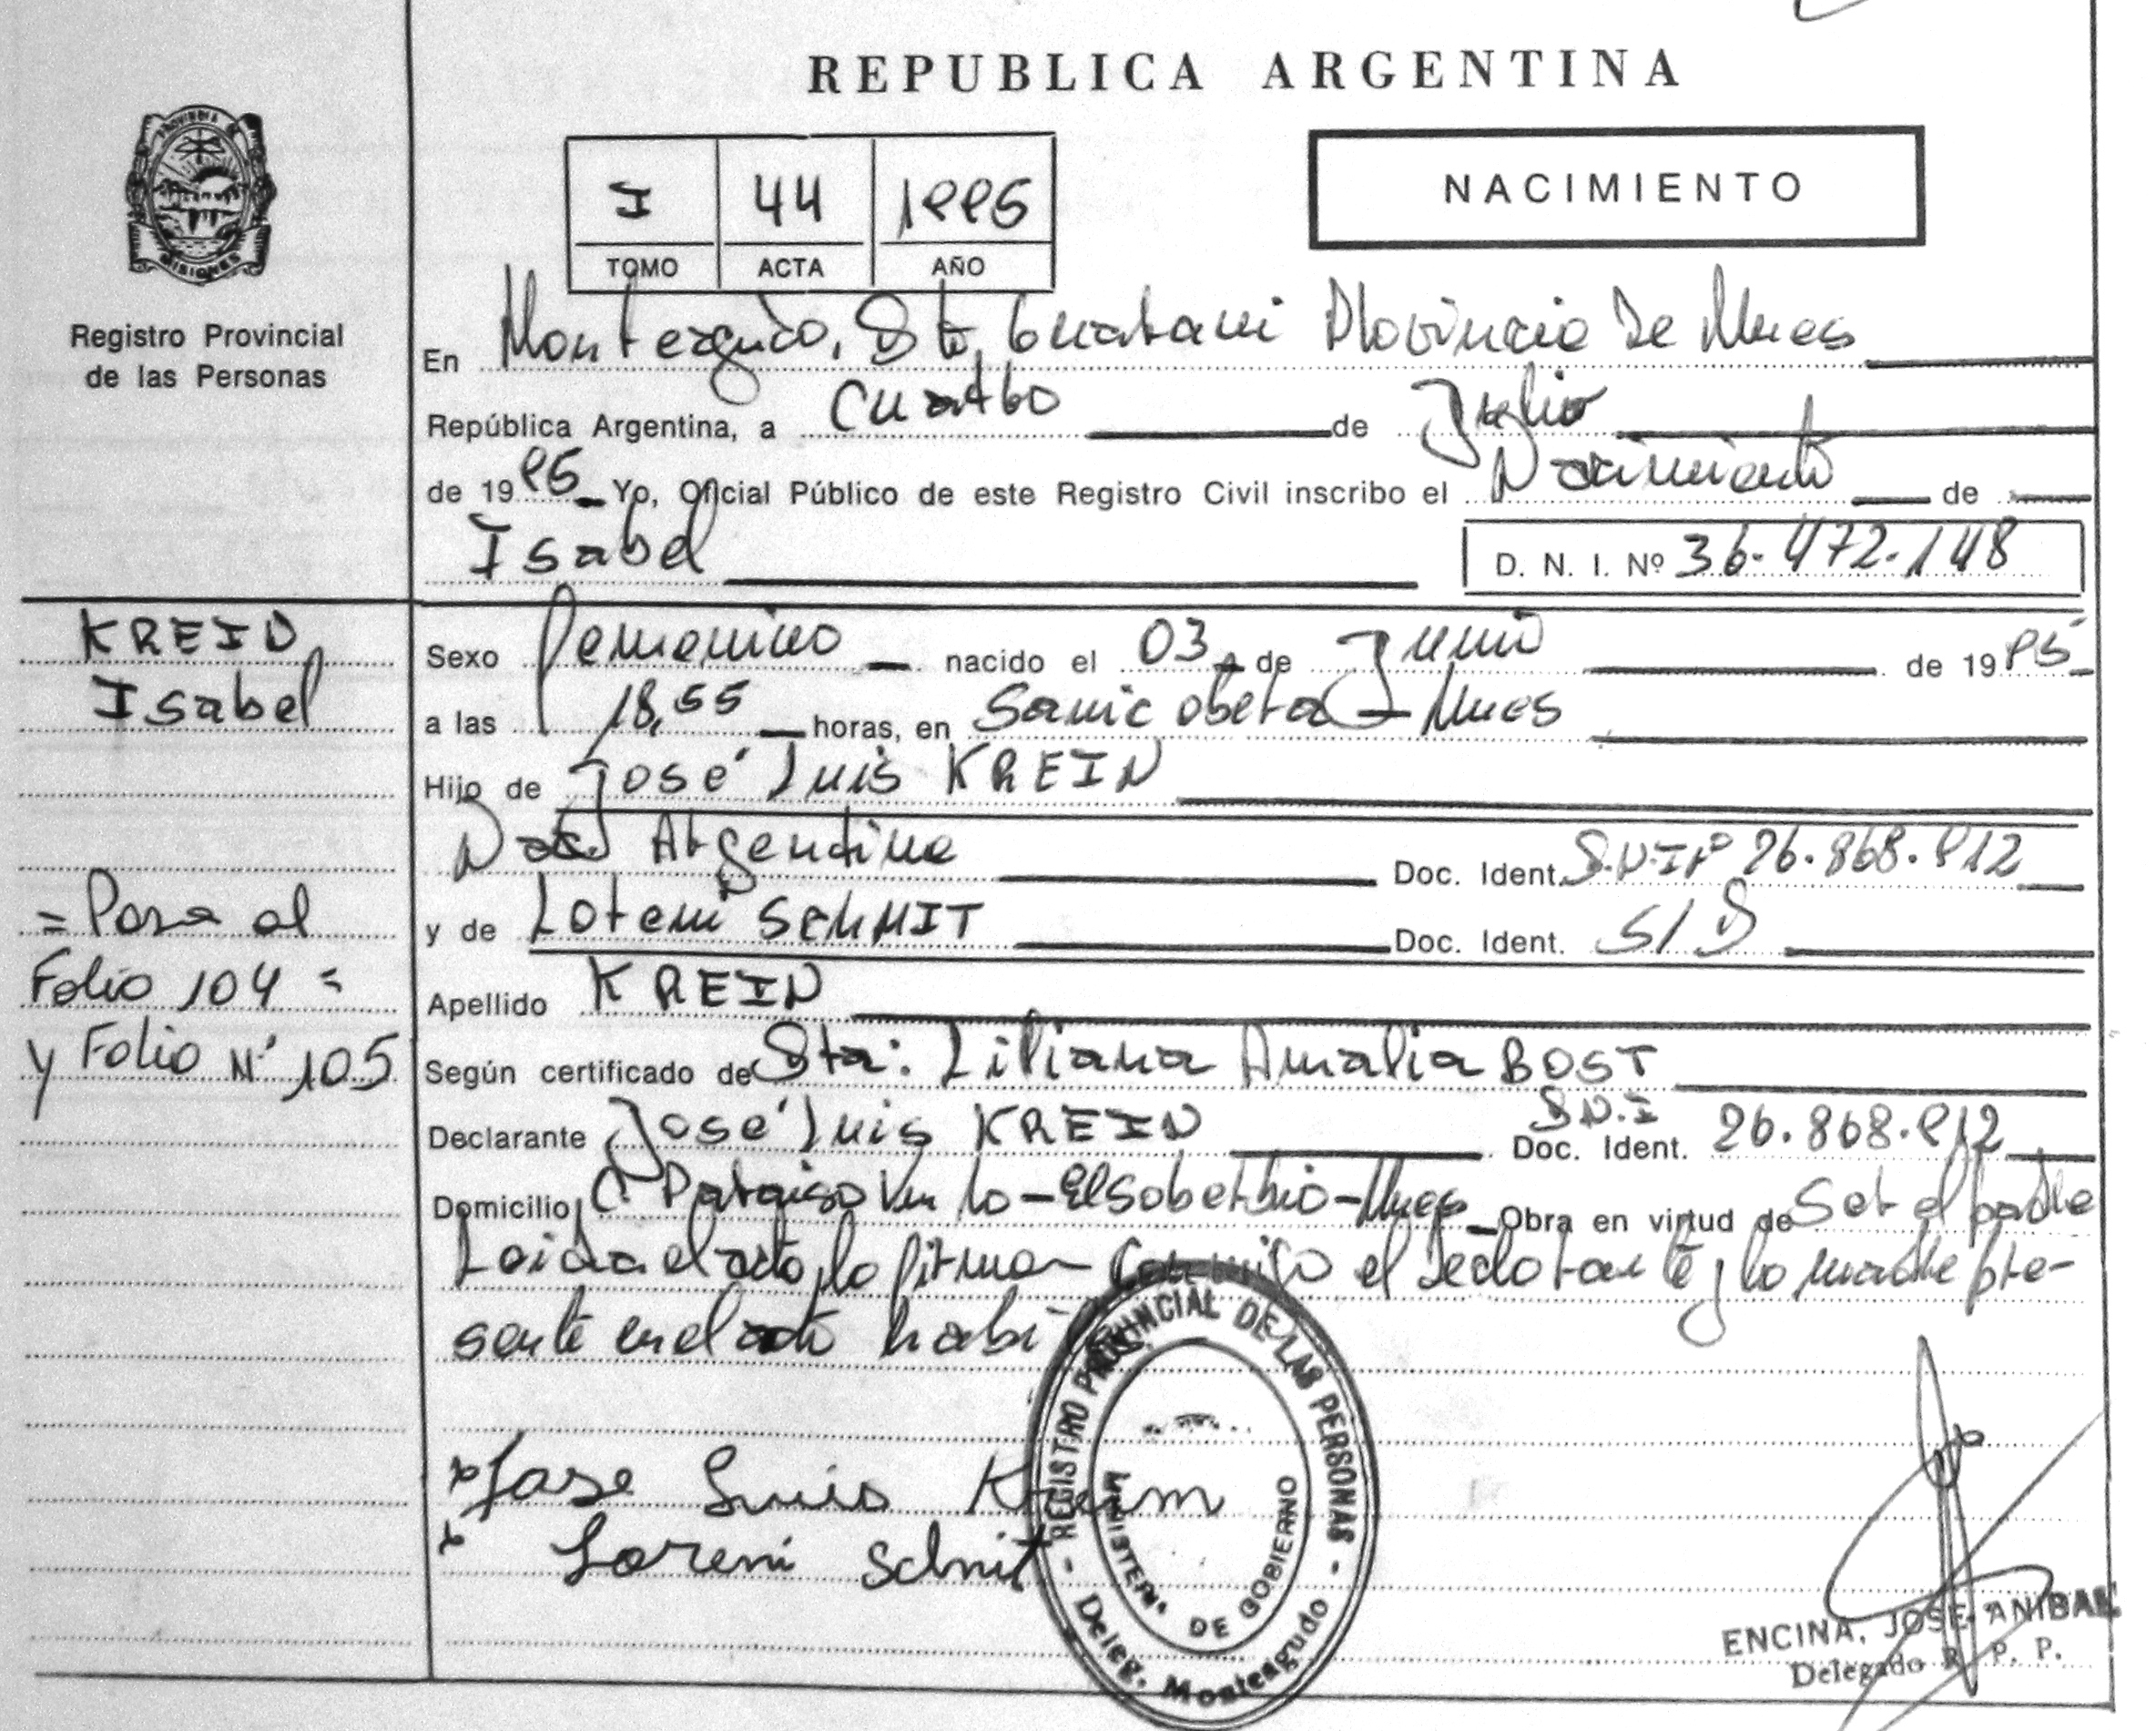 REPUBLICA ARGENTINA
PROVINCIA DE
MISIONES
Registro Provincial
de las Personas
I 44 1995
TOMO ACTA AÑO
NACIMIENTO
En Monteagudo, Dto. Guarani Provincia De Mnes
República Argentina, a cuatro de Julio
de 1995 Yo, Oficial Público de este Registro Civil inscribo el Nacimiento de
Isabel
D. N. I. Nº 36.472.148
KREIN
Isabel
Sexo Femenino nacido el 03 de Junio de 1995
a las 18,55 horas, en Mnes
Hijo de José Luis KREIN
Nac. Argentina Doc. Ident. D.N.I Nº 26.868.912
y de Loreni SCHMIT Doc. Ident. S/D
= Pasa al
Folio 104 =
y Folio Nº 105
Apellido KREIN
Según certificado de Sta: Liliana Amalia BOST
Declarante José Luis KREIN Doc. Ident. D.N.I 26.868.912
Domicilio C. Paraiso - El Soberbio - Mnes Obra en virtud de Ser el padre
Leida el acta, la firman conmigo el declarante y la madre pre-
sente en el acto
Jose Luis Krein
Loreni Schmit
REGISTRO PROVINCIAL DE LAS PERSONAS
MINISTERIO DE GOBIERNO
Deleg. Monteagudo
ENCINA, JOSE ANIBAL
Delegado R. P. P.